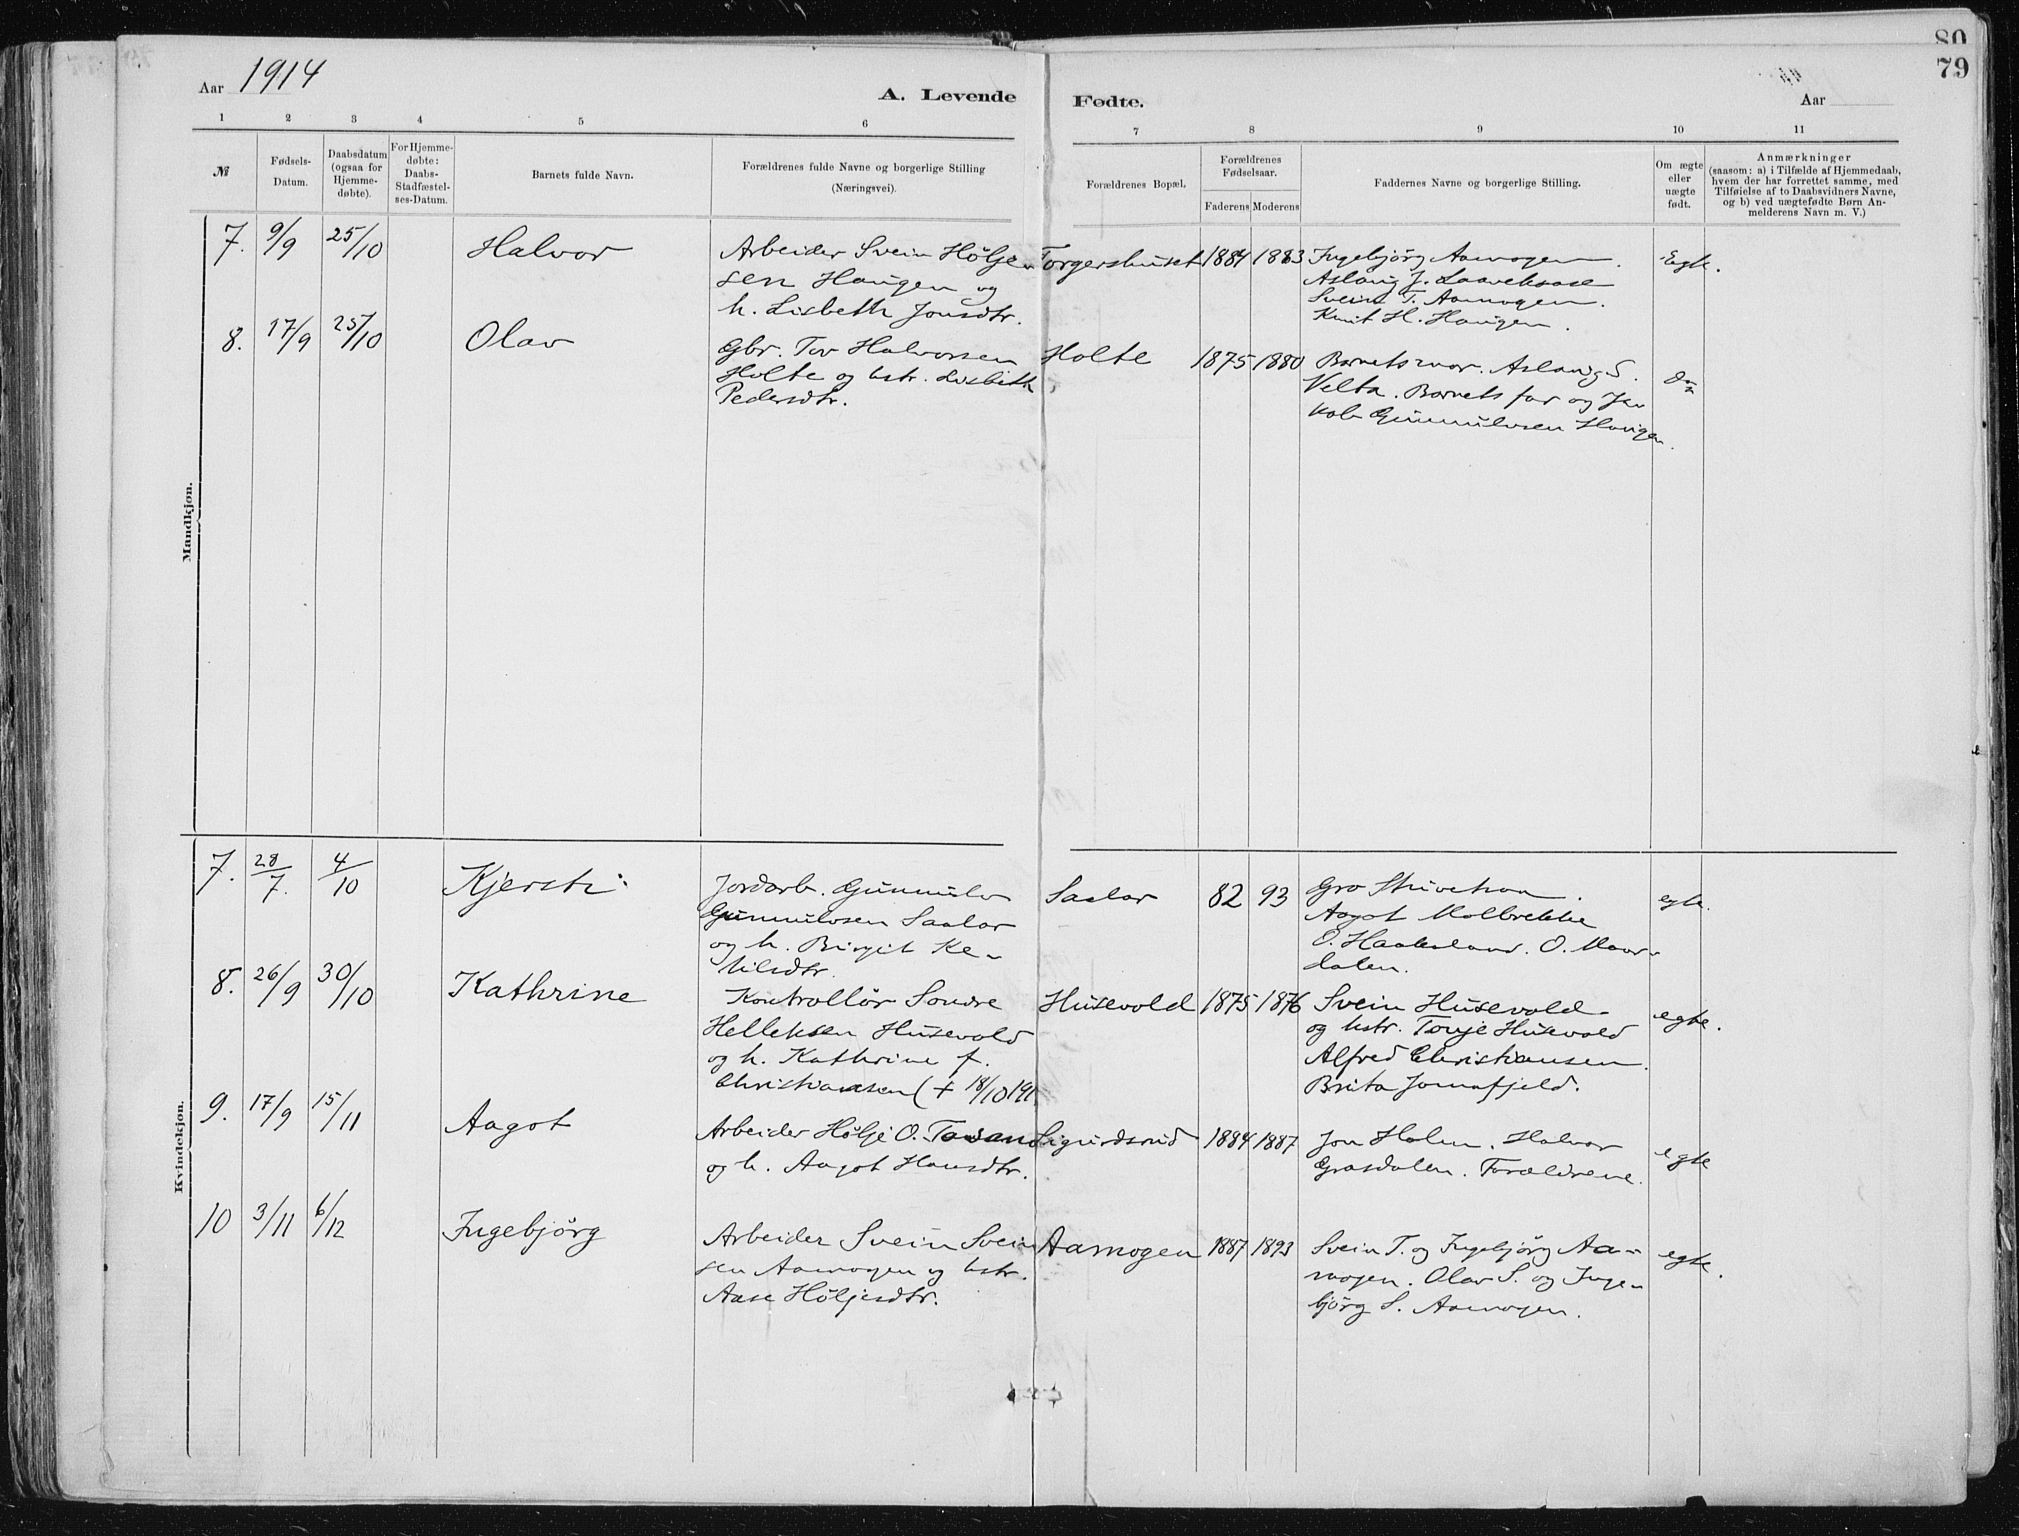 80
79
Aar 1914
A. Levende Fødte.
Aar
1 2 3 4 5 6 7 8 9 10 11
№
Fødsels-
Datum.
Daabsdatum
(ogsaa for
Hjemme-
døbte).
For Hjemme-
døbte:
Daabs-
Stadfæstel-
ses-Datum.
Barnets fulde Navn.
Forældrenes fulde Navne og borgerlige Stilling
(Næringsvei).
Forældrenes Bopæl.
Forældrenes
Fødselsaar.
Faderens Moderens
Faddernes Navne og borgerlige Stilling.
Om ægte
eller
uægte
født.
Anmærkninger
(saasom: a) i Tilfælde af Hjemmedaab,
hvem der har forrettet samme, med
Tilføielse af to Daabsvidners Navne,
og b) ved uægtefødte Børn An-
melderens Navn m. V.)
Mandkjøn.
7. 9/9 25/10 Halvor Arbeider Svein Hölje- Torgershuset 1884 1883 Ingebjörg Aamogen. Egte.
sen Haugen og Aslaug J.
h. Lisbeth Jonsdtr. Svein T. Aamogen.
Knut H. Haugen.
8. 17/9 25/10 Olav Gbr. Tov Halvorsen Holte 1875 1880 Barnets mor. Aslaug S. do
Holte og hstr. Lisbeth Velta. Barnets far og Ja-
Pedersdtr. kob Gunnulvsen Haugen.
Kvindekjøn.
7. 28/7. 4/10 Kjersti Jordarb. Gunnulv Saalar 82 93 Gro egte.
Gunnulvsen Saalar Aagot Molbrekke
og h. Birgit Ke- O. Haakesland. O. Maar-
tilsdtr. dalen.
8. 26/9 30/10 Kathrine Kontrollör Sondre Husevold 1875 1876 Svein Husevold egte.
Helleksen Husevold og hstr. Tonje Husevold
og h. Kathrine f. Alfred Christiansen.
Christiansen (+ 18/10 191 Brita Jomafjeld.
9. 17/9 15/11 Aagot Arbeider Hölje O. Sigurdsrud 1884 1887 Jon Holen. Halvor egte
og h. Aagot Hansdtr. Grasdalen. Forældrene.
10 3/11 6/12 Ingebjörg Arbeider Svein Svein Aamogen 1887 1893 Svein T. og Ingebjörg Aa- egte.
sen Aamogen og hstr. mogen. Olav S. og Inge-
Aase Höljesdtr. björg S. Aamogen.